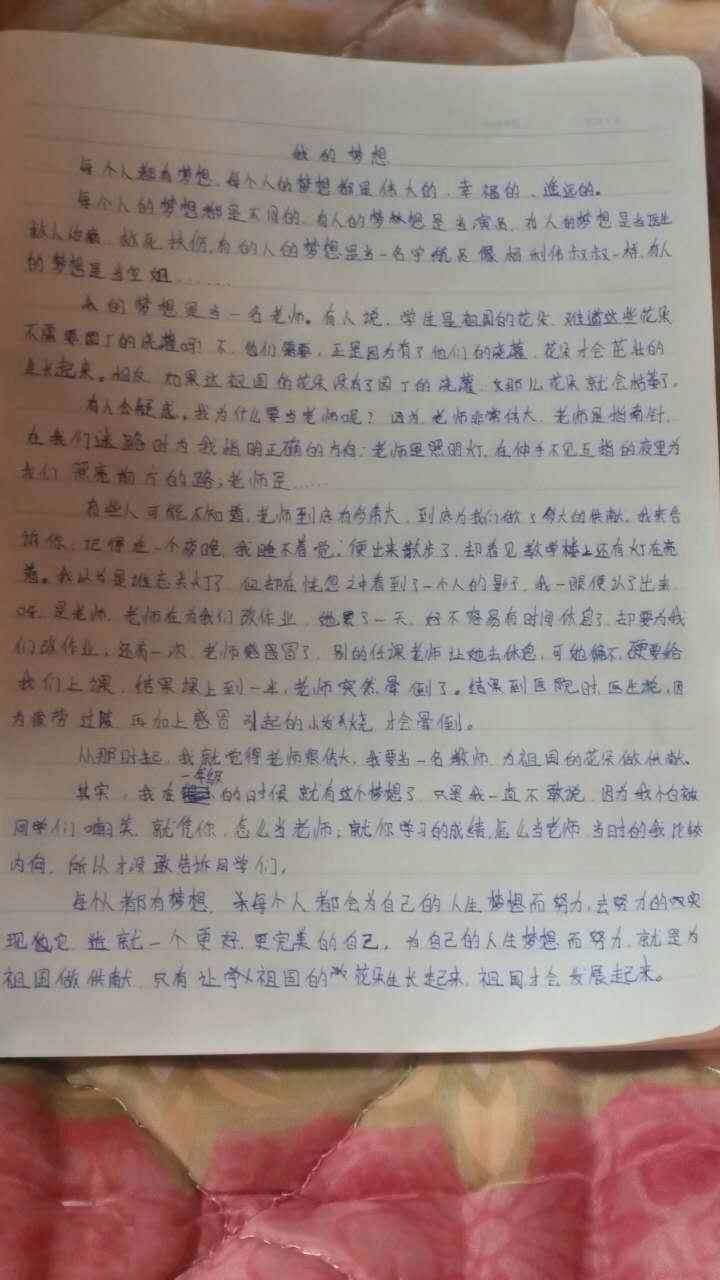 我的梦想
每个人都有梦想，每个人的梦想都是伟大的、幸福的、遥远的。
每个人的梦想都是不同的，有人的梦想是当演员，有人的梦想是当医生
救人治病，救死扶伤，有的人的梦想是当一名宇航员像杨利伟叔叔一样，有人
的梦想是当空姐……
我的梦想是当一名老师。有人说，学生是祖国的花朵，难道这些花朵
不需要园丁的浇灌吗？不，他们需要，正是因为有了他们的浇灌，花朵才会茁壮的
生长起来。相反，如果这祖国的花朵没有了园丁的浇灌，那儿花朵就会枯萎了。
有人会疑惑，我为什么要当老师呢？因为，老师非常伟大，老师是指南针，
在我们迷路时为我指明正确的方向；老师是照明灯，在伸手不见五指的夜里为
我们照亮前方的路；老师是……
有些人可能不知道，老师到底有多伟大，到底为我们做了多大的供献，我来告
诉你，记得在一个夜晚，我睡不着觉，便出来散步了，却看见教学楼上还有灯在亮
着。我以为是谁忘关灯了，但却在恍忽之中看到了一个人的影子，我一眼便认了出来
是老师，老师在为我们改作业，她累了一天，好不容易有时间休息了，却要为我
们改作业；还有一次，老师感冒了，别的任课老师让她去休息，可她偏不，硬要给
我们上课，结果课上到一半，老师突然晕倒了。结果到医院时，医生说，因
为疲劳过度，再加上感冒引起的发烧，才会晕倒。
从那时起，我就觉得老师很伟大，我要当一名教师，为祖国的花朵做供献。
其实，我在一年级的时候，就有这个梦想了，只是我一直不敢说，因为我怕被
同学们嘲笑，就凭你，怎么当老师；就你学习的成绩，怎么当老师，当时的我比较
内向，所以才没敢告诉同学们。
每个人都有梦想，每个人都会为自己的人生梦想而努力，去努力的实
现它，造就一个更好，更完美的自己，为自己的人生梦想而努力，就是为
祖国做供献，只有让祖国的花朵生长起来，祖国才会发展起来。